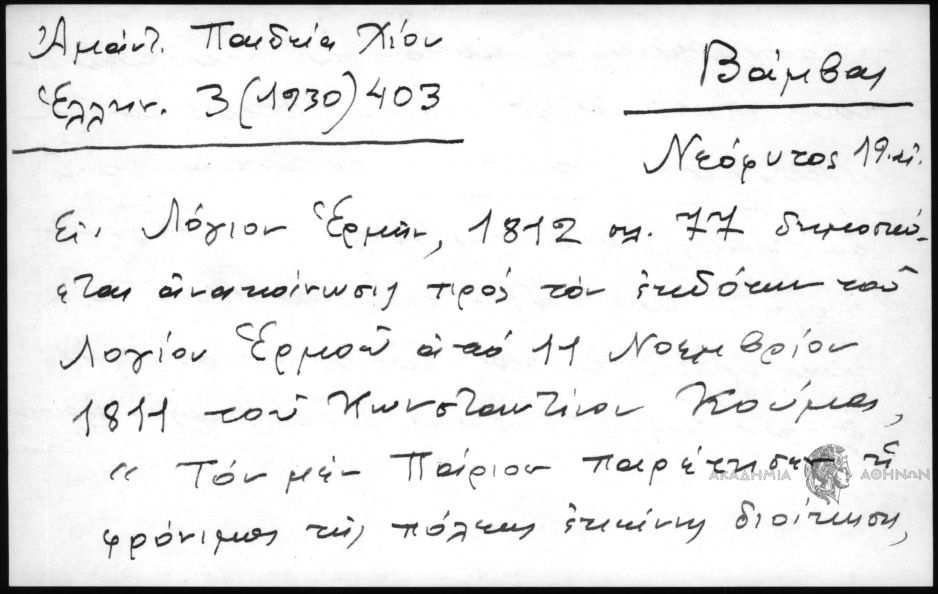 Ἀμάντ. Παιδεία Χίου
Ἑλλην. 3 (1930) 403
Βάμβας
Νεόφυτος 19.αἰ.
Εἰς Λόγιον Ἑρμῆν, 1812 σελ. 77 δημοσιεύ-
εται ἀνακοίνωσις πρὸς τὸν ἐκδότην τοῦ
Λογίου Ἑρμοῦ ἀπὸ 11 Νοεμβρίου
1811 τοῦ Κωνσταντίνου Κούμας,
“ Τόν μέν Πάριον παρέπεμψεν ἡ
φρόνιμος τῆς πόλεως ἐκείνης διοίκησις,
ΑΚΑΔΗΜΙΑ ΑΘΗΝΩΝ